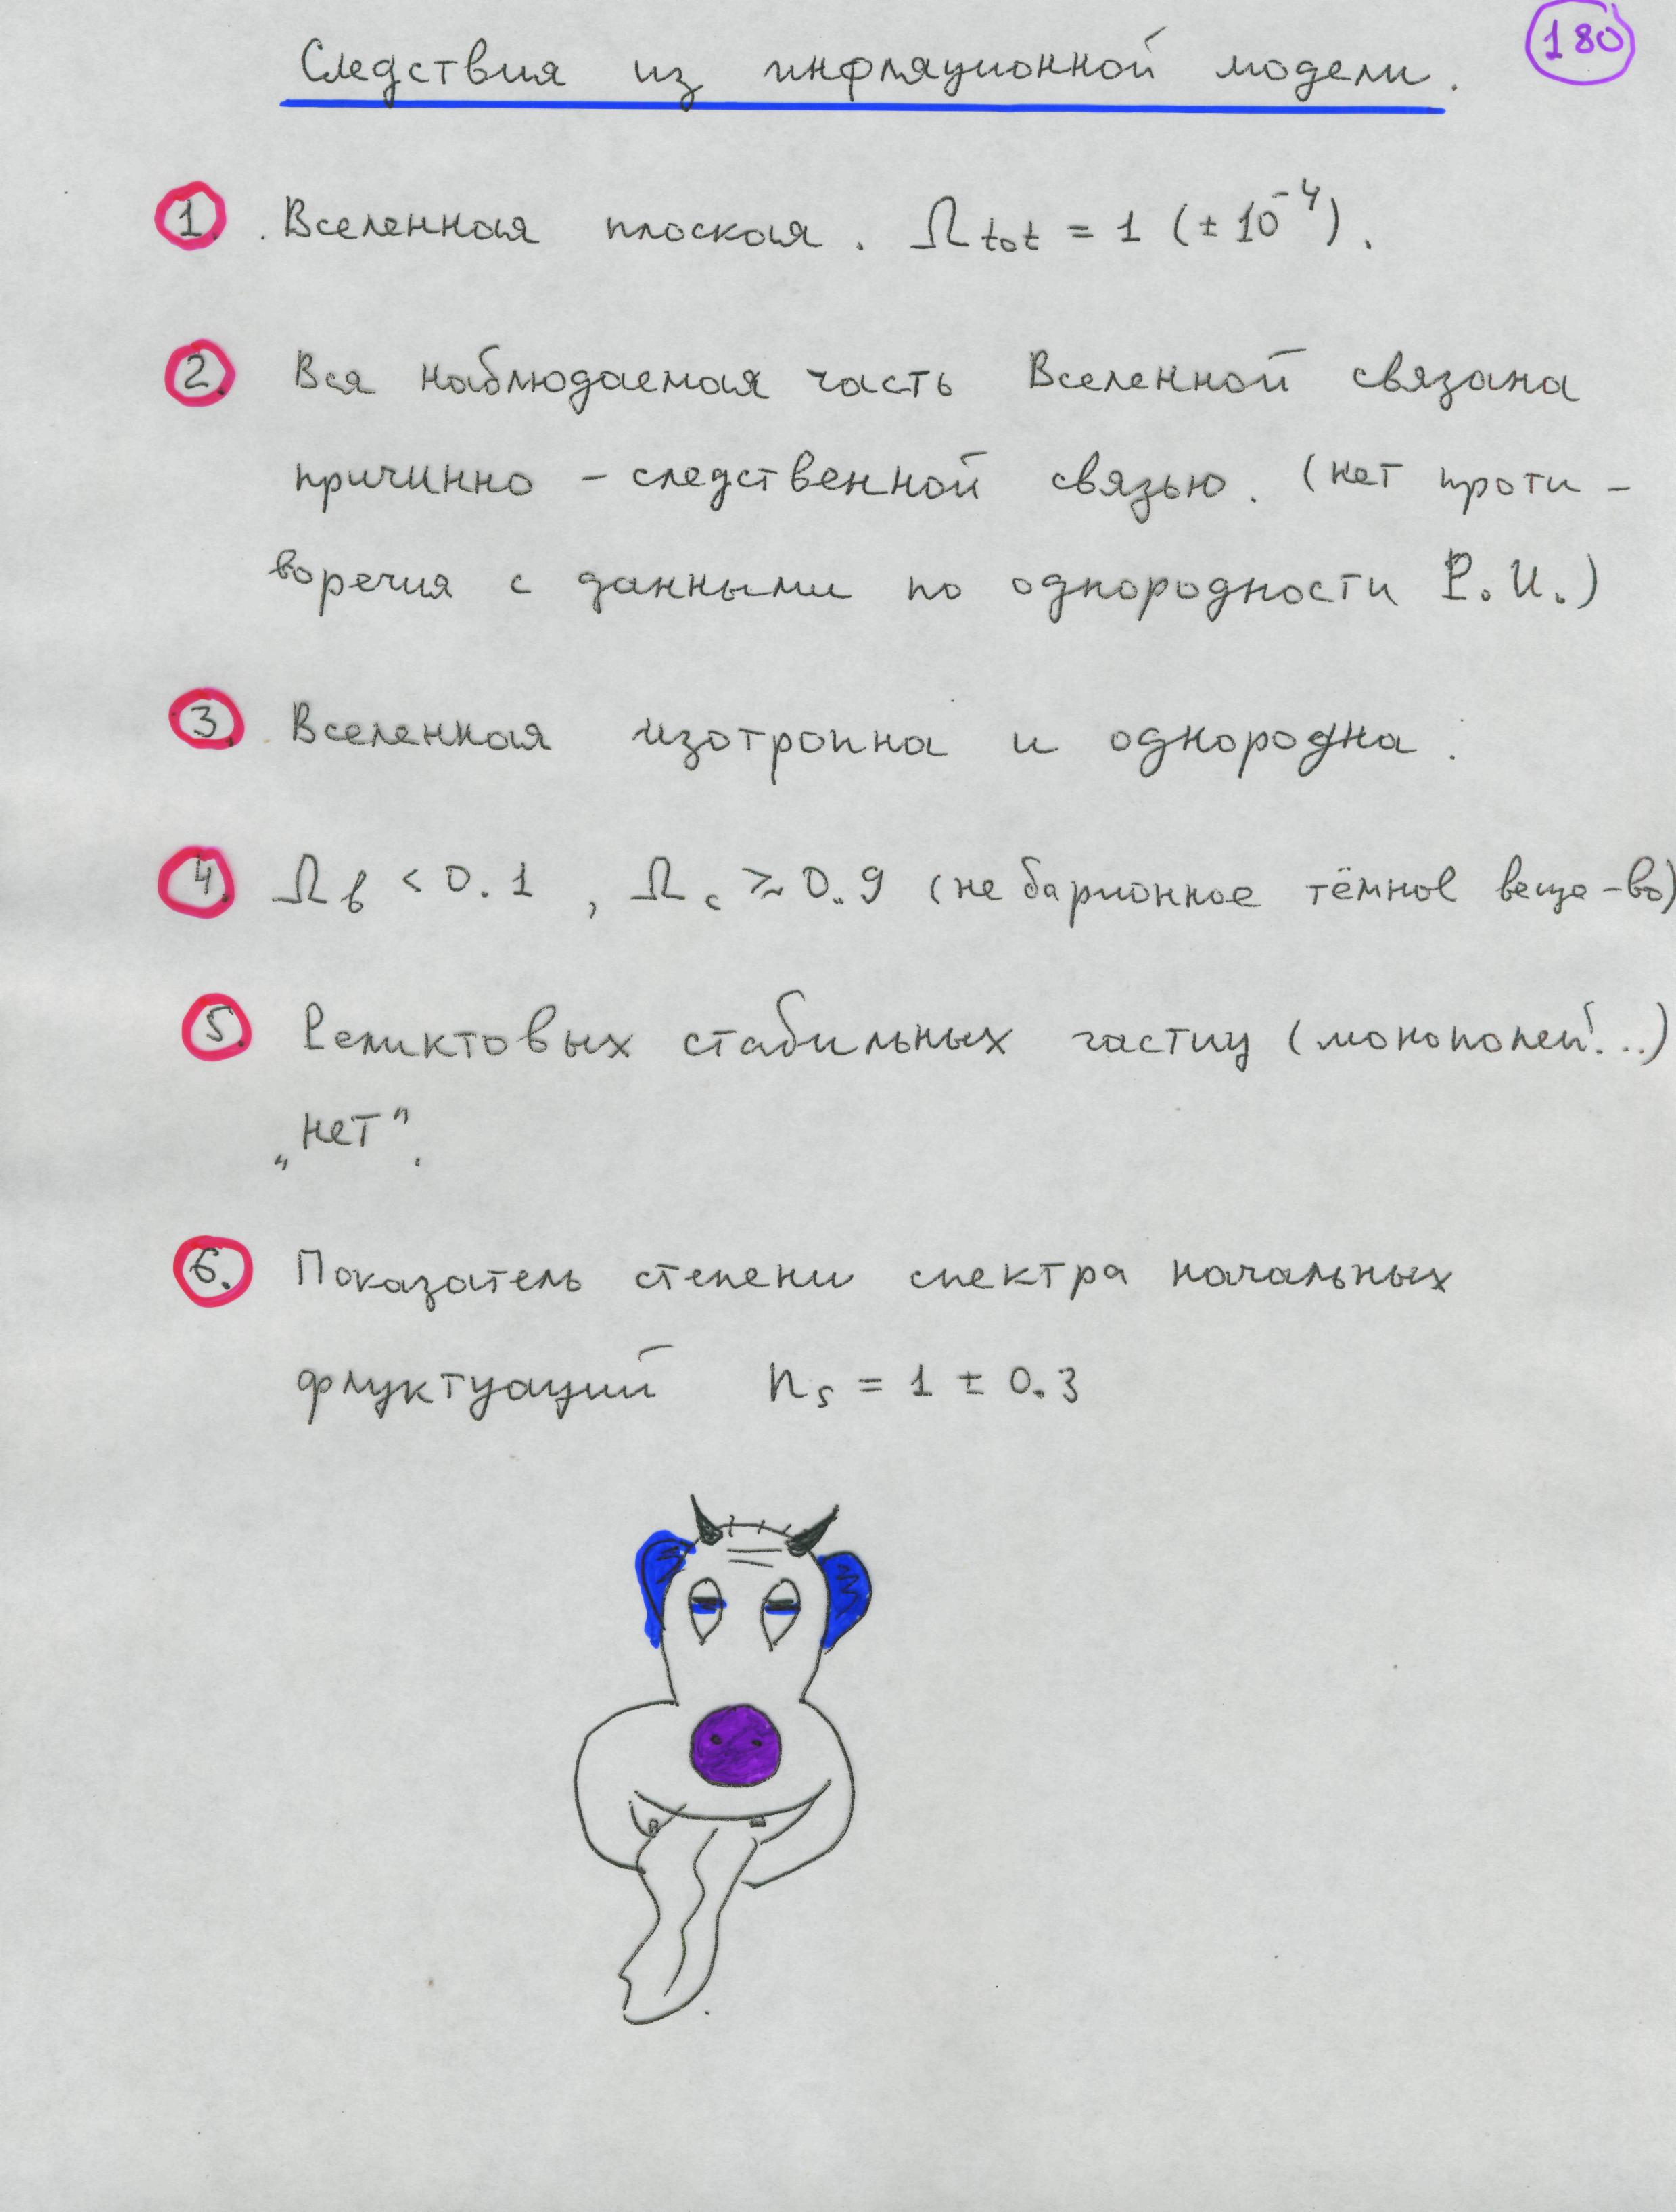 180
Следствия из инфляционной модели.
1. Вселенная плоская. Ω tot = 1 (± 10⁻⁴).
2. Вся наблюдаемая часть Вселенной связана
причинно - следственной связью. (нет проти -
воречия с данными по однородности Р.И.)
3. Вселенная изотропна и однородна.
4. Ω b < 0.1 , Ω c ≳ 0.9 (не барионное тёмное веще-во)
5. Реликтовых стабильных частиц (монополей!...)
„нет".
6. Показатель степени спектра начальных
флуктуаций ns = 1 ± 0.3